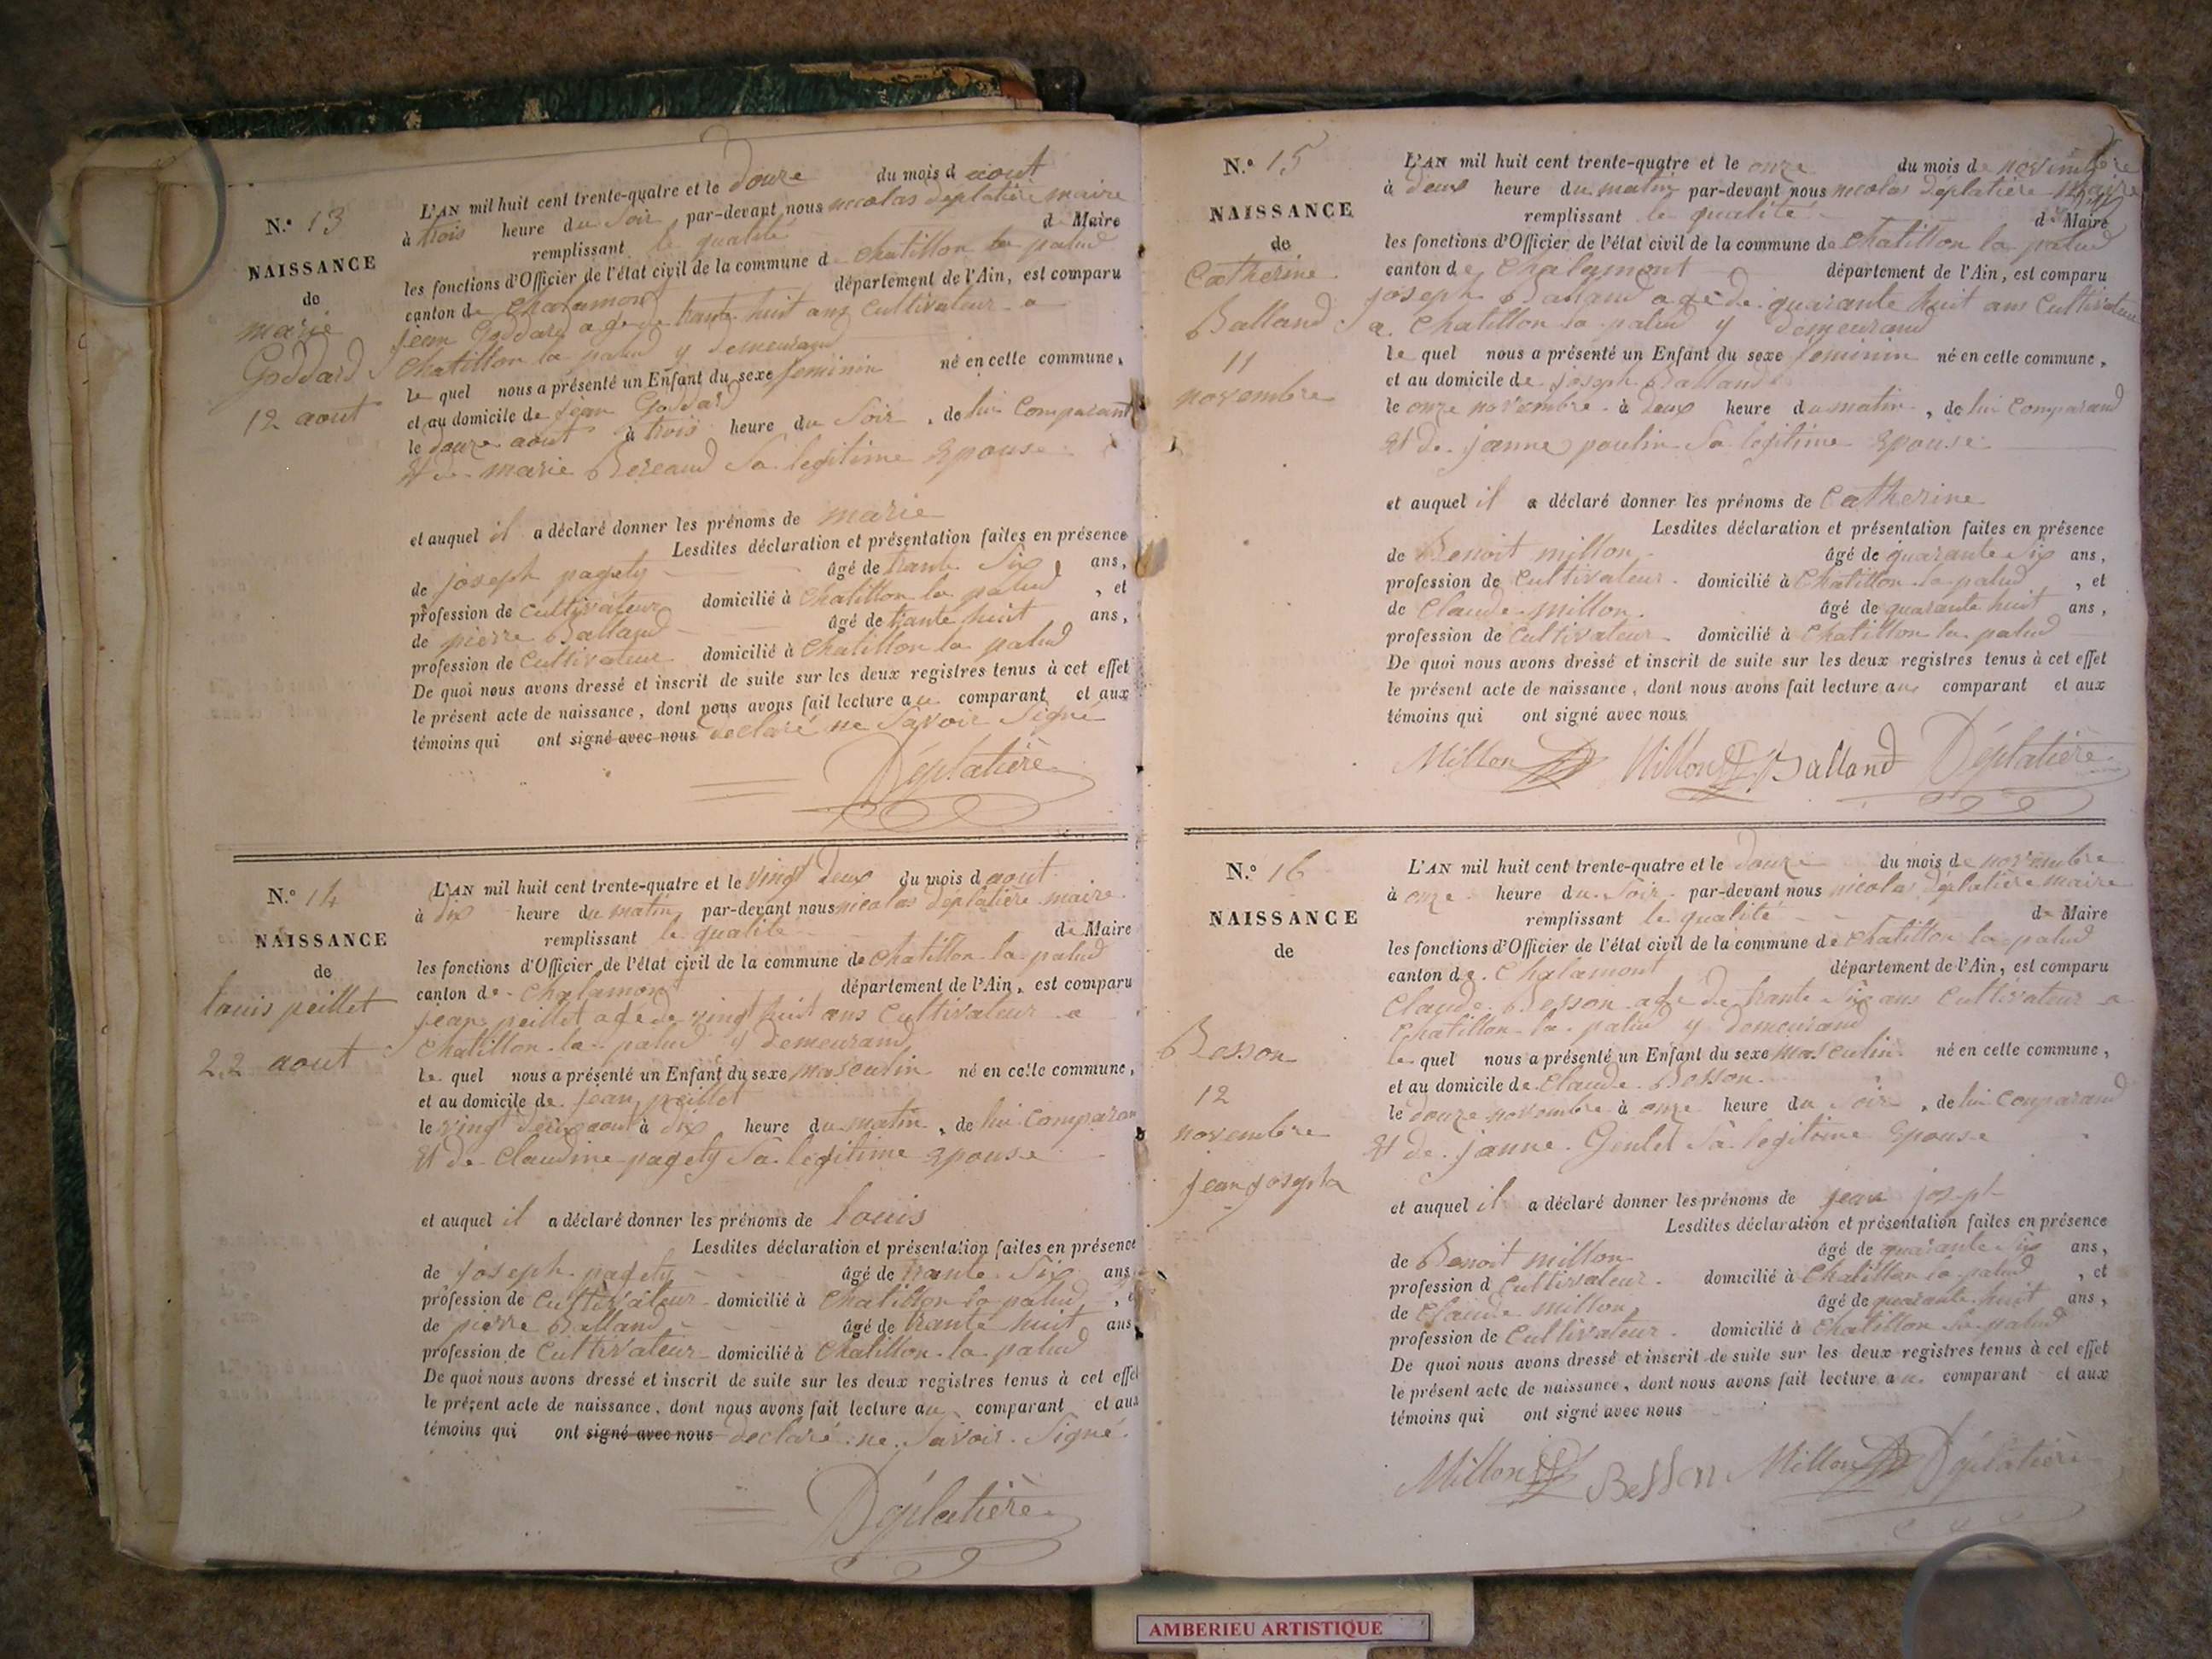 N.º 13
NAISSANCE
de
marie
Goddard
12 aout
L'AN mil huit cent trente-quatre et le douze du mois d aout
à trois heure du Soir par-devant nous nicolas déplatière maire
remplissant le qualité de Maire
les fonctions d'Officier de l'état civil de la commune de chatillon la palud
canton de Chalamont département de l'Ain, est comparu
jean Goddard agé de trante huit ans Cultivateur a
Chatillon la palud y demeurand
le quel nous a présenté un Enfant du sexe feminin né en cette commune,
et au domicile de jean Goddard
le douze aout à trois heure du Soir, de lui Comparant
Et de marie Bereaud Sa legitime Epouse
et auquel il a déclaré donner les prénoms de marie
Lesdites déclaration et présentation faites en présence
de joseph pagety âgé de trante Six ans,
profession de cultivateur domicilié à Chatillon la palud, et
de pierre Balland âgé de trante huit ans,
profession de Cultivateur domicilié à Chatillon la palud
De quoi nous avons dressé et inscrit de suite sur les deux registres tenus à cet effet
le présent acte de naissance, dont nous avons fait lecture au comparant et aux
témoins qui ont signé avec nous declaré ne Savoir Signé
Déplatière
N.º 14
NAISSANCE
de
louis peillet
22 aout
L'AN mil huit cent trente-quatre et le vingt deux du mois d aout
à dix heure du matin par-devant nous nicolas déplatière maire
remplissant le qualité de Maire
les fonctions d'Officier de l'état civil de la commune de chatillon la palud
canton de Chalamont département de l'Ain, est comparu
jean peillet agé de vingt huit ans Cultivateur a
Chatillon la palud y demeurand
le quel nous a présenté un Enfant du sexe masculin né en cette commune,
et au domicile de jean peillet
le vingt deux aout à dix heure du matin, de lui Comparan
Et de Claudine pagety Sa legitime Epouse
et auquel il a déclaré donner les prénoms de louis
Lesdites déclaration et présentation faites en présence
de joseph pagety âgé de trante Six ans
profession de Cultivateur domicilié à Chatillon la palud,
de pierre Balland âgé de trante huit ans
profession de Cultivateur domicilié à Chatillon la palud
De quoi nous avons dressé et inscrit de suite sur les deux registres tenus à cet effet
le présent acte de naissance, dont nous avons fait lecture au comparant et aux
témoins qui ont signé avec nous declaré ne Savoir Signé
Déplatière
N.º 15
NAISSANCE
de
Catherine
Balland
11
novembre
L'AN mil huit cent trente-quatre et le onze du mois de novembre
à deux heure du matin par-devant nous nicolas déplatière maire
remplissant le qualité de Maire
les fonctions d'Officier de l'état civil de la commune de Chatillon la palud
canton de Chalamont département de l'Ain, est comparu
joseph Balland agé de quarante huit ans Cultivateur
a Chatillon la palud y demeurand
le quel nous a présenté un Enfant du sexe feminin né en cette commune,
et au domicile de joseph Balland
le onze novembre à deux heure du matin, de lui Comparand
Et de janne poulin Sa legitime Epouse
et auquel il a déclaré donner les prénoms de Catherine
Lesdites déclaration et présentation faites en présence
de Benoit millon âgé de quarante Six ans,
profession de Cultivateur domicilié à Chatillon la palud, et
de Claude millon âgé de quarante huit ans,
profession de Cultivateur domicilié à Chatillon la palud
De quoi nous avons dressé et inscrit de suite sur les deux registres tenus à cet effet
le présent acte de naissance, dont nous avons fait lecture au comparant et aux
témoins qui ont signé avec nous
Millon Millon Balland Déplatière
N.º 16
NAISSANCE
de
Besson
12
novembre
jean joseph
L'AN mil huit cent trente-quatre et le douze du mois de novembre
à onze heure du Soir par-devant nous nicolas déplatière maire
remplissant le qualité de Maire
les fonctions d'Officier de l'état civil de la commune de Chatillon la palud
canton de Chalamont département de l'Ain, est comparu
Claude Besson agé de trante Six ans Cultivateur a
Chatillon la palud y demeurand
le quel nous a présenté un Enfant du sexe masculin né en cette commune,
et au domicile de Claude Besson
le douze novembre à onze heure du Soir, de lui Comparand
Et de janne Gentet Sa legitime Epouse
et auquel il a déclaré donner les prénoms de jean joseph
Lesdites déclaration et présentation faites en présence
de Benoit millon âgé de quarante Six ans,
profession d Cultivateur domicilié à Chatillon la palud, et
de Claude millon âgé de quarante huit ans,
profession de Cultivateur domicilié à Chatillon la palud
De quoi nous avons dressé et inscrit de suite sur les deux registres tenus à cet effet
le présent acte de naissance, dont nous avons fait lecture au comparant et aux
témoins qui ont signé avec nous
Millon Besson Millon Déplatière
AMBERIEU ARTISTIQUE